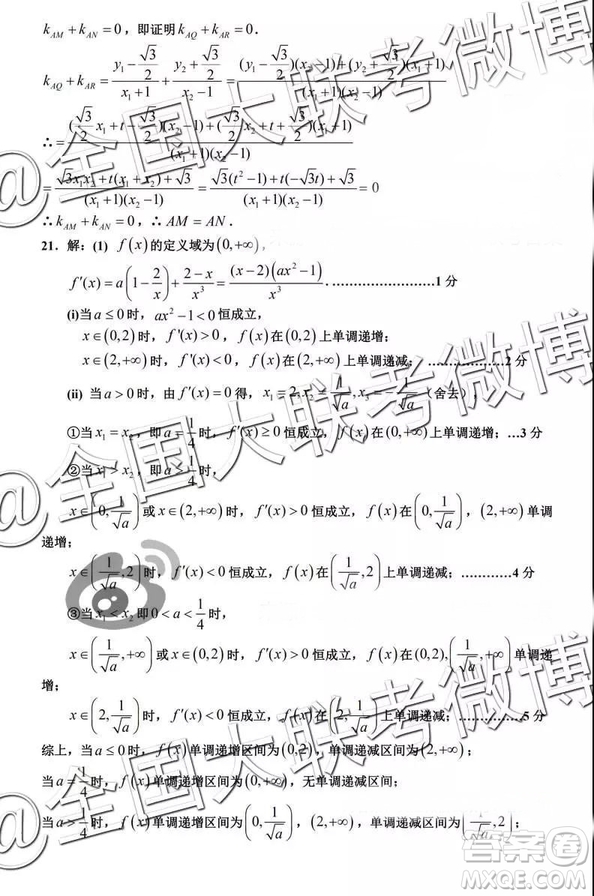 k_{AM}+k_{AN}=0,即证明 k_{AQ}+k_{AR}=0.
k_{AQ}+k_{AR}=\frac{y_1-\frac{\sqrt{3}}{2}}{x_1+1}+\frac{y_2+\frac{\sqrt{3}}{2}}{x_2-1}=\frac{(y_1-\frac{\sqrt{3}}{2})(x_2-1)+(y_2+\frac{\sqrt{3}}{2})(x_1+1)}{(x_1+1)(x_2-1)}
∴=\frac{(\frac{\sqrt{3}}{2}x_1+t-\frac{\sqrt{3}}{2})(x_2-1)+(\frac{\sqrt{3}}{2}x_2+t+\frac{\sqrt{3}}{2})(x_1+1)}{(x_1+1)(x_2-1)}
=\frac{\sqrt{3}x_1x_2+t(x_1+x_2)+\sqrt{3}}{(x_1+1)(x_2-1)}=\frac{\sqrt{3}(t^2-1)+t(-\sqrt{3}t)+\sqrt{3}}{(x_1+1)(x_2-1)}=0
∴k_{AM}+k_{AN}=0,∴AM=AN.
21.解:(1) f(x)的定义域为(0,+∞),
f'(x)=a\left(1-\frac{2}{x}\right)+\frac{2-x}{x^3}=\frac{(x-2)(ax^2-1)}{x^3}.........................1分
(i)当a≤0时,ax^2-1<0恒成立,
x∈(0,2)时,f'(x)>0,f(x)在(0,2)上单调递增;
x∈(2,+∞)时,f'(x)<0,f(x)在(2,+∞)上单调递减;...................2分
(ii) 当a>0时,由f'(x)=0得,x_1=2,x_2=\frac{1}{\sqrt{a}},x_3=-\frac{1}{\sqrt{a}}(舍去),
①当x_1=x_2,即a=\frac{1}{4}时,f'(x)≥0恒成立,f(x)在(0,+∞)上单调递增;...3分
②当x_1>x_2,即a>\frac{1}{4}时,
x∈\left(0,\frac{1}{\sqrt{a}}\right)或x∈(2,+∞)时,f'(x)>0恒成立,f(x)在\left(0,\frac{1}{\sqrt{a}}\right),(2,+∞)单调
递增;
x∈\left(\frac{1}{\sqrt{a}},2\right)时,f'(x)<0恒成立,f(x)在\left(\frac{1}{\sqrt{a}},2\right)上单调递减;............4分
③当x_1<x_2即0<a<\frac{1}{4}时,
x∈\left(\frac{1}{\sqrt{a}},+∞\right)或x∈(0,2)时,f'(x)>0恒成立,f(x)在(0,2),\left(\frac{1}{\sqrt{a}},+∞\right)单调递
增;
x∈\left(2,\frac{1}{\sqrt{a}}\right)时,f'(x)<0恒成立,f(x)在\left(2,\frac{1}{\sqrt{a}}\right)上单调递减;...............5分
综上,当a≤0时,f(x)单调递增区间为(0,2),单调递减区间为(2,+∞);
当a=\frac{1}{4}时,f(x)单调递增区间为(0,+∞),无单调递减区间;
当a>\frac{1}{4}时,f(x)单调递增区间为\left(0,\frac{1}{\sqrt{a}}\right),(2,+∞),单调递减区间为\left(\frac{1}{\sqrt{a}},2\right);
@全国大联考微博
@全国大联考微博
@全国大联考微博
答案圈
MXQE.COM